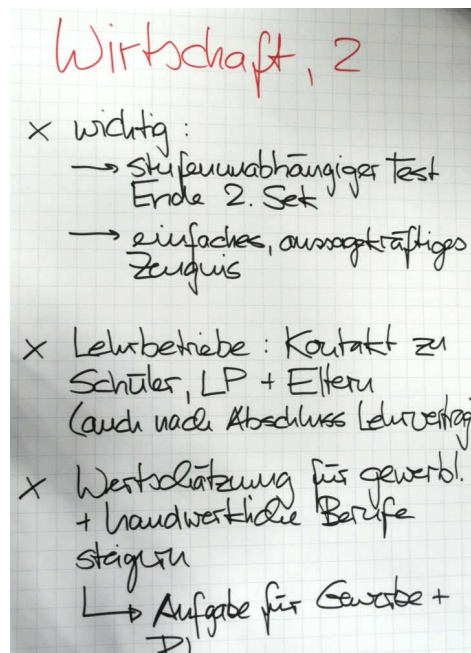 Wirtschaft, 2
× wichtig:
→ stufenunabhängiger Test
Ende 2. Sek
→ einfaches, aussagekräftiges
Zeugnis
× Lehrbetriebe: Kontakt zu
Schüler, LP + Eltern
(auch nach Abschluss Lehrvertrag)
× Wertschätzung für gewerbl.
+ handwerkliche Berufe
steigern
↳ Aufgabe für Gewerbe +